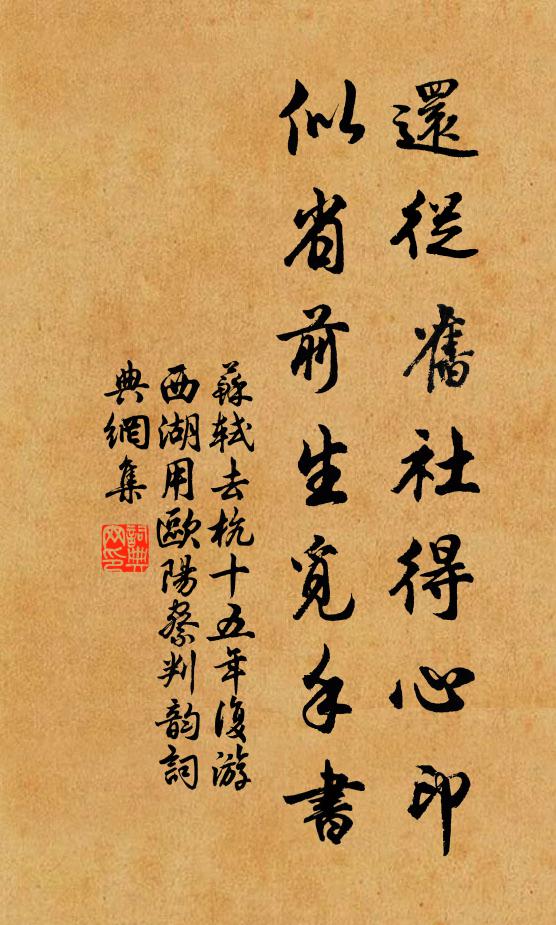 還從舊社得心印
似省前生覓手書
蘇軾去杭十五年復游
西湖用歐陽察判韵詞
典網集
詞典
网印